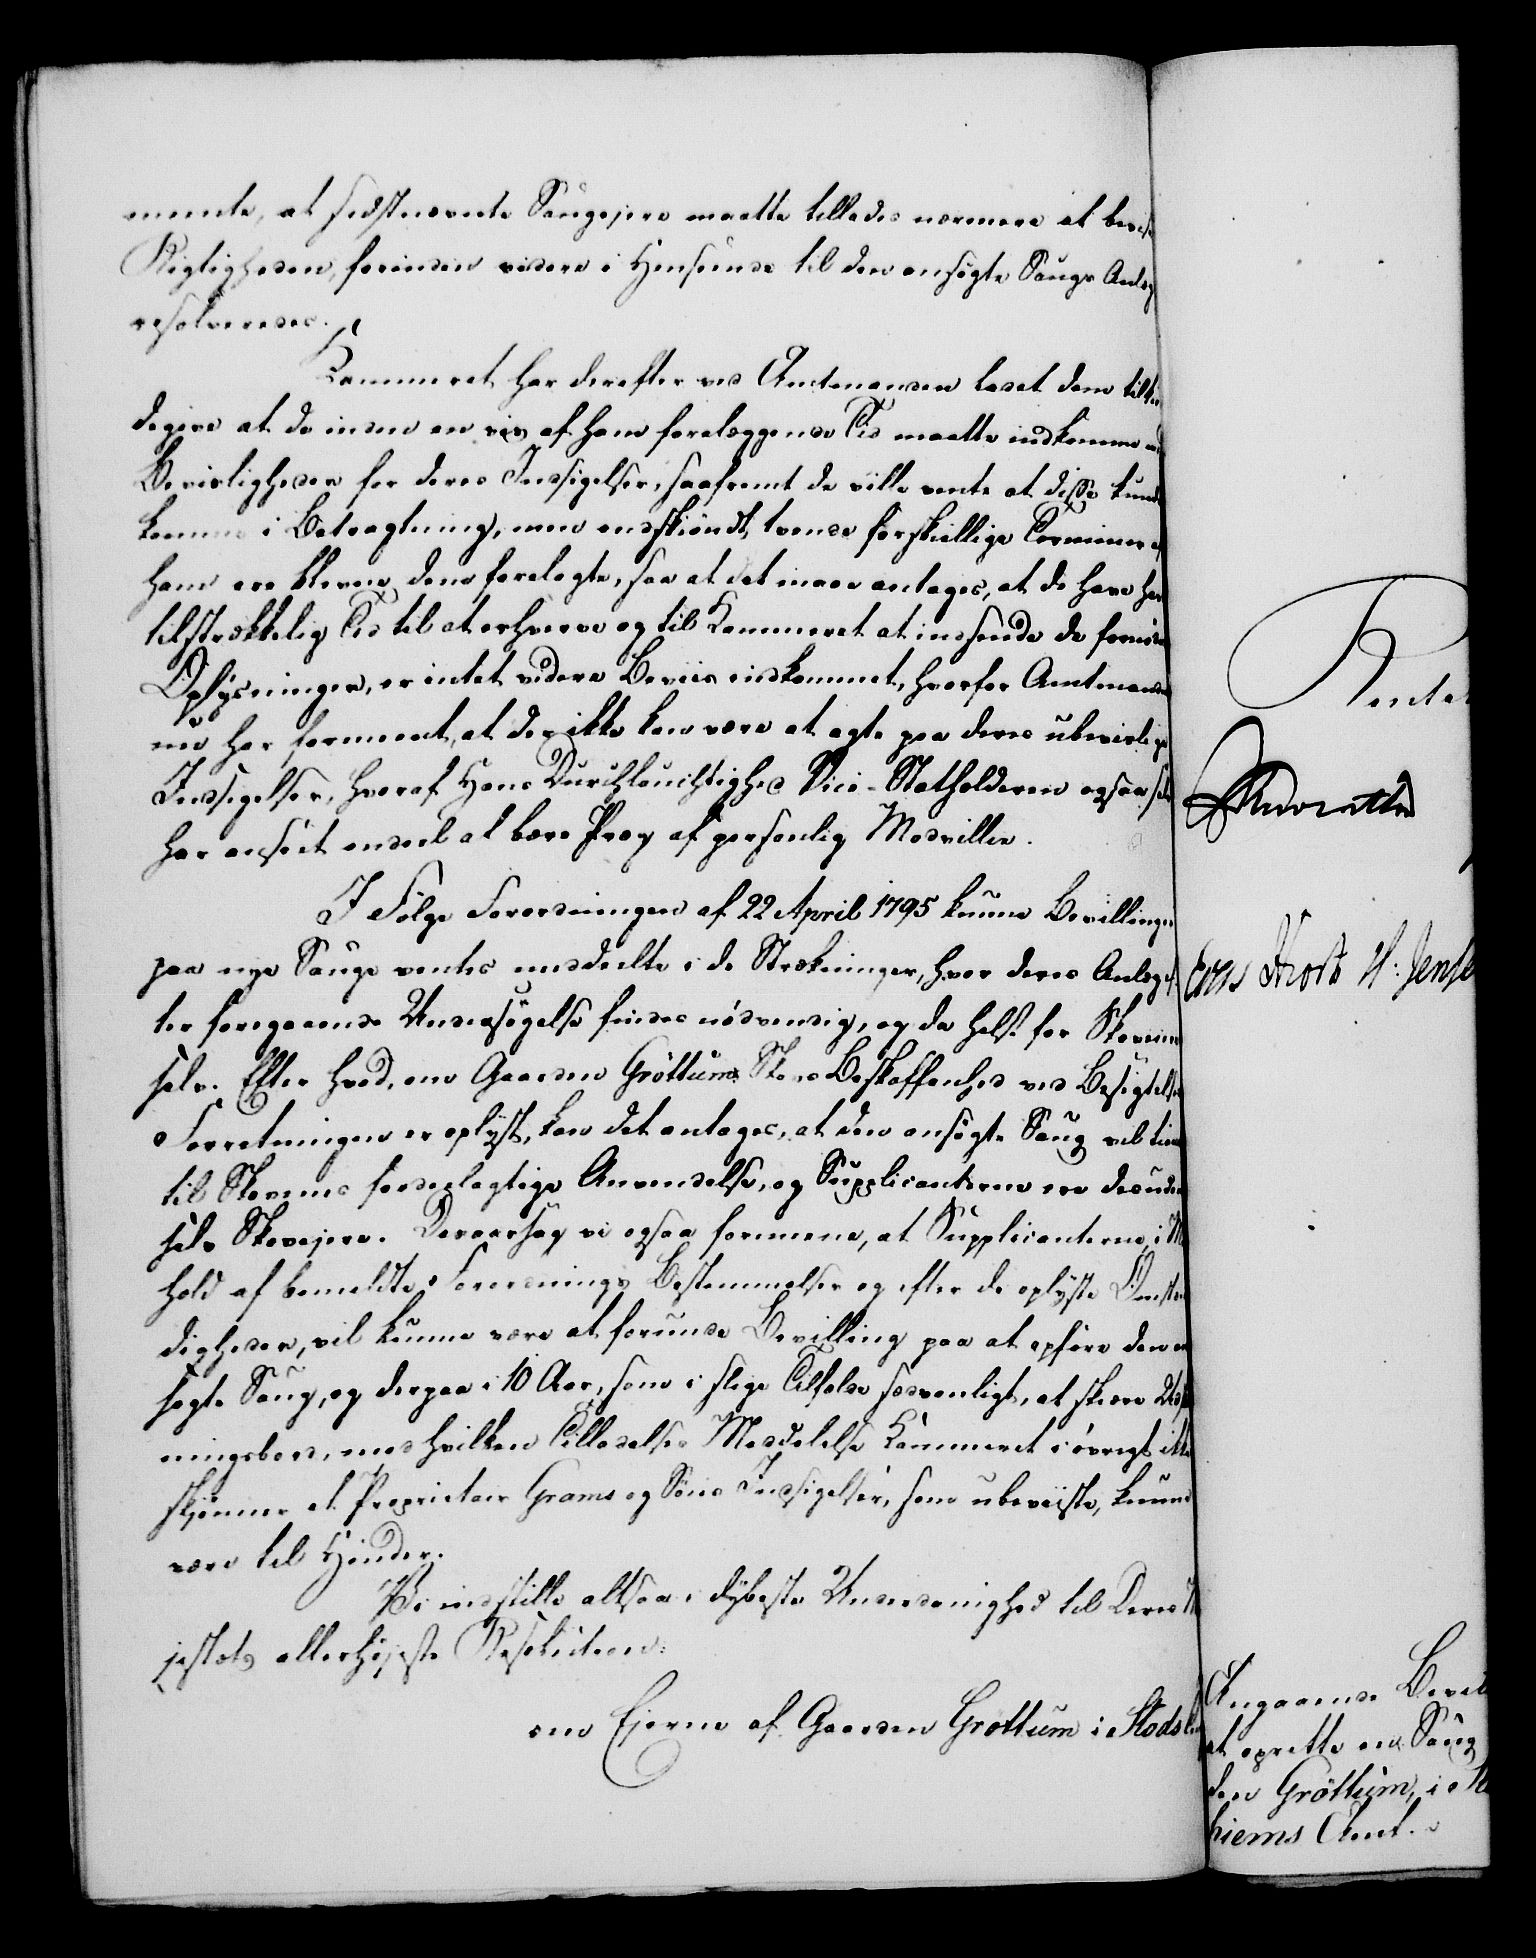 meente, at sidstnævnte Saugejere maatte tillades nærmere at bevise
Rigtigheden, forinden videre i Henseende til den ansøgte Saugs Anlæg
resolveredes.
Kammeret har derefter ved Amtmanden ladet dem tilkien-
degive at de inden en vis af ham forelæggende Tid maatte indkomme med
Beviisligheder for deres Indsigelser, saafremt de ville vente at disse kunde
komme i Betragtning, men endskiøndt tvende forskiellige Terminer af
ham ere blevne dem forelagte, saa at det maae antages, at de have havt
tilstrækkelig Tid til at erhverve og til Kammeret at indsende de fornødne
Oplysninger, er intet videre Beviis indkommet, hvorfor Amtmanden
nu har formeent, at der ikke kan være at agte paa deres ubeviislige
Indsigelser, hvoraf Hans Durchlauchtighed Vice-Statholderen ogsaa selv
har anseet endeel at bære Præg af personlig Modvillie.
I Følge Forordningen af 22 April 1795 kunne Bevillinger
paa nye Sauge ventes meddeelte i de Strækninger, hvor deres Anlæg ef-
ter foregaaende Undersøgelse findes nødvendig, og da helst for Skoveierne
selv. Efter hvad, om Gaarden Grøttums Skovs Beskaffenhed ved Besigtelses
Forretningen er oplyst, kan det antages, at den ansøgte Saug vil tiene
til Skovens fordeelagtige Anvendelse, og Supplicanterne ere desuden
selv Skovejere. Deraarsag vi ogsaa formene, at Supplicanterne, i Med-
hold af bemeldte Forordnings Bestemmelser og efter de oplyste Omstæn-
digheder, vil kunne være at forunde Bevilling paa at opføre den an-
søgte Saug, og derpaa i 10 Aar, som i slige Tilfælde sædvanligt, at skiære Udskib-
ningsbord, mod hvilken Tilladelses Meddelelse Kammeret i øvrigt ikke
skjønner at Proprietair Grams og Søns Indsigelser, som ubeviiste, kunne
være til Hinder.
Vi indstille altsaa i dybeste Underdanighed til Deres Ma-
jestæts allerhøjeste Resolution:
om Ejerne af Gaarden Grøttum i Stods
Rente
Eras Hiort H: Jense
Angaaende Bevil
at oprette en Saug
den Grøttum, i
hiems Amt.